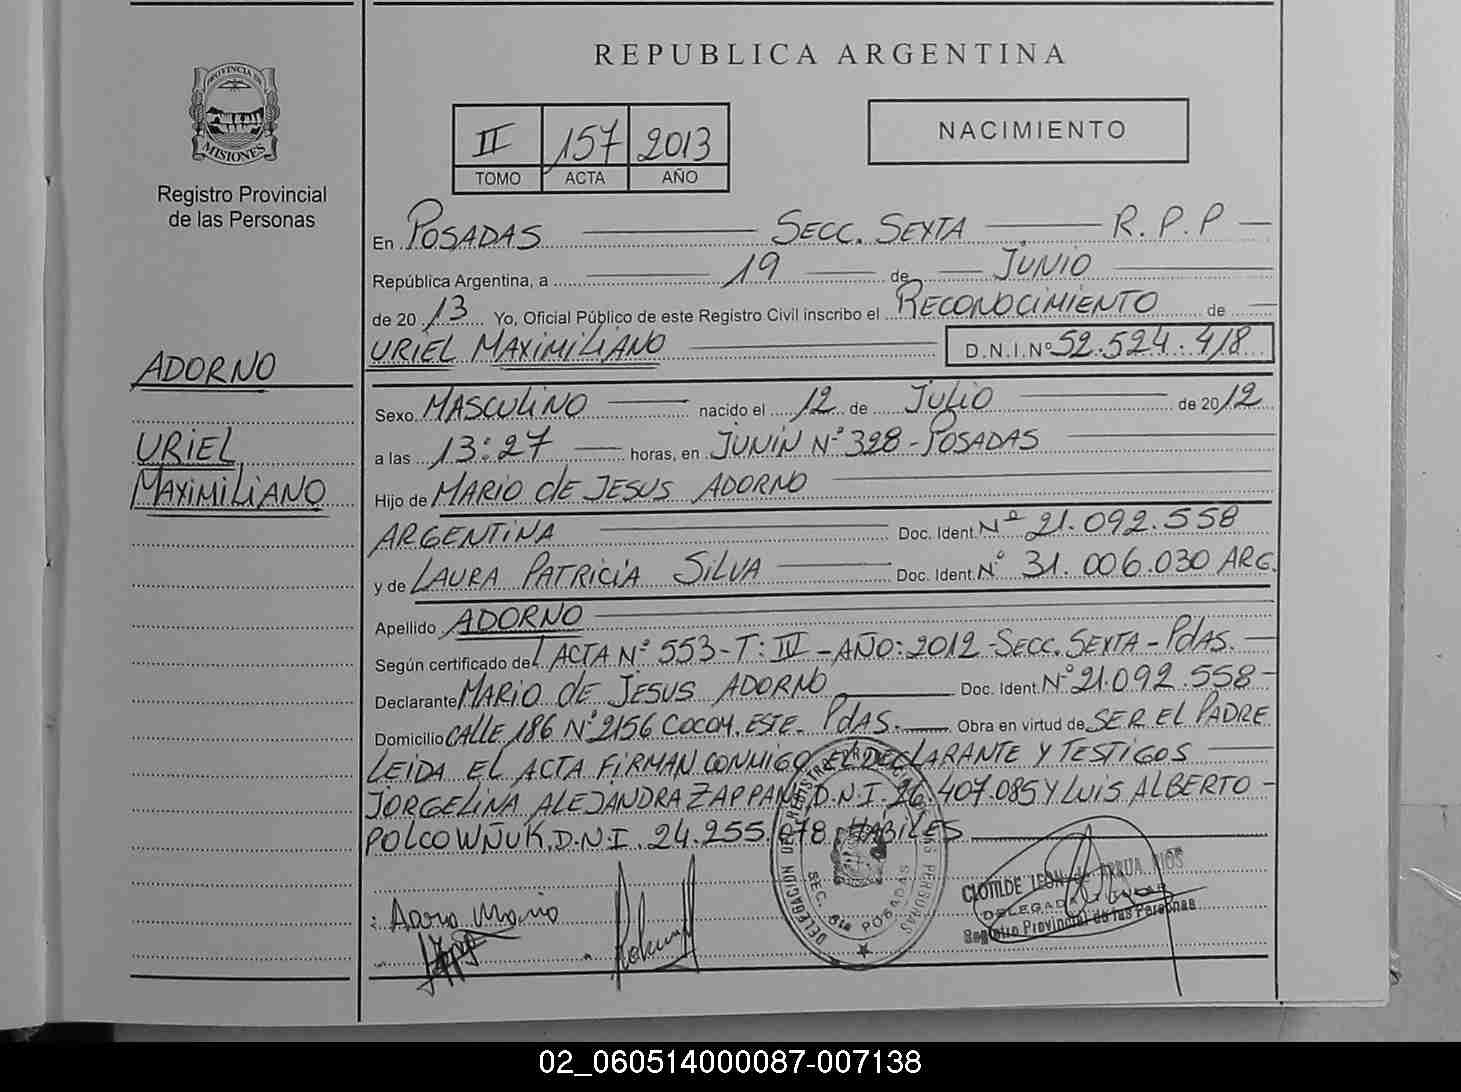 REPUBLICA ARGENTINA
PROVINCIA DE
MISIONES
Registro Provincial
de las Personas
II 157 2013
TOMO ACTA AÑO
NACIMIENTO
En POSADAS SECC. SEXTA R.P.P
República Argentina, a 19 de JUNIO
de 2013 Yo, Oficial Público de este Registro Civil inscribo el RECONOCIMIENTO de
URIEL MAXIMILIANO D.N.I.Nº 52.524.418
ADORNO
URIEL
MAXIMILIANO
Sexo MASCULINO nacido el 12 de JULIO de 2012
a las 13:27 horas, en JUNIN Nº 328 - POSADAS
Hijo de MARIO dE JESUS ADORNO
ARGENTINA Doc. Ident. Nº 21.092.558
y de LAURA PATRICIA SILVA Doc. Ident. Nº 31.006.030 ARG.
Apellido ADORNO
Según certificado del ACTA Nº 553-T: IV - AÑO: 2012 - SECC. SEXTA - PdAS.
Declarante MARIO dE JESUS ADORNO Doc. Ident. Nº 21.092.558-
Domicilio CALLE 186 Nº 2156 COCOM. ESTE. PdAS. Obra en virtud de SER EL PADRE
LEIDA EL ACTA FIRMAN CONMIGO EL DECLARANTE Y TESTIGOS
JORGELINA ALEJANDRA ZAPPANI D.N.I. 26.407.085 Y LUIS ALBERTO -
POLCOWÑUK, D.N.I. 24.255.078, HABILES
DELEGACION DEL REGISTRO PROVINCIAL DE LAS PERSONAS
SEC. 6ta POSADAS
CLOTILDE LEONOR ARRUA RIOS
DELEGADA
Registro Provincial de las Personas
02_060514000087-007138